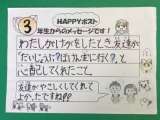 HAPPYポスト
3年生からのメッセージです!
わたしがけがをしたとき、友達が
「だいじょうぶ?ほけん室に行く?」と
心配してくれたこと。
友達がやさしくしてくれて
よかったですね